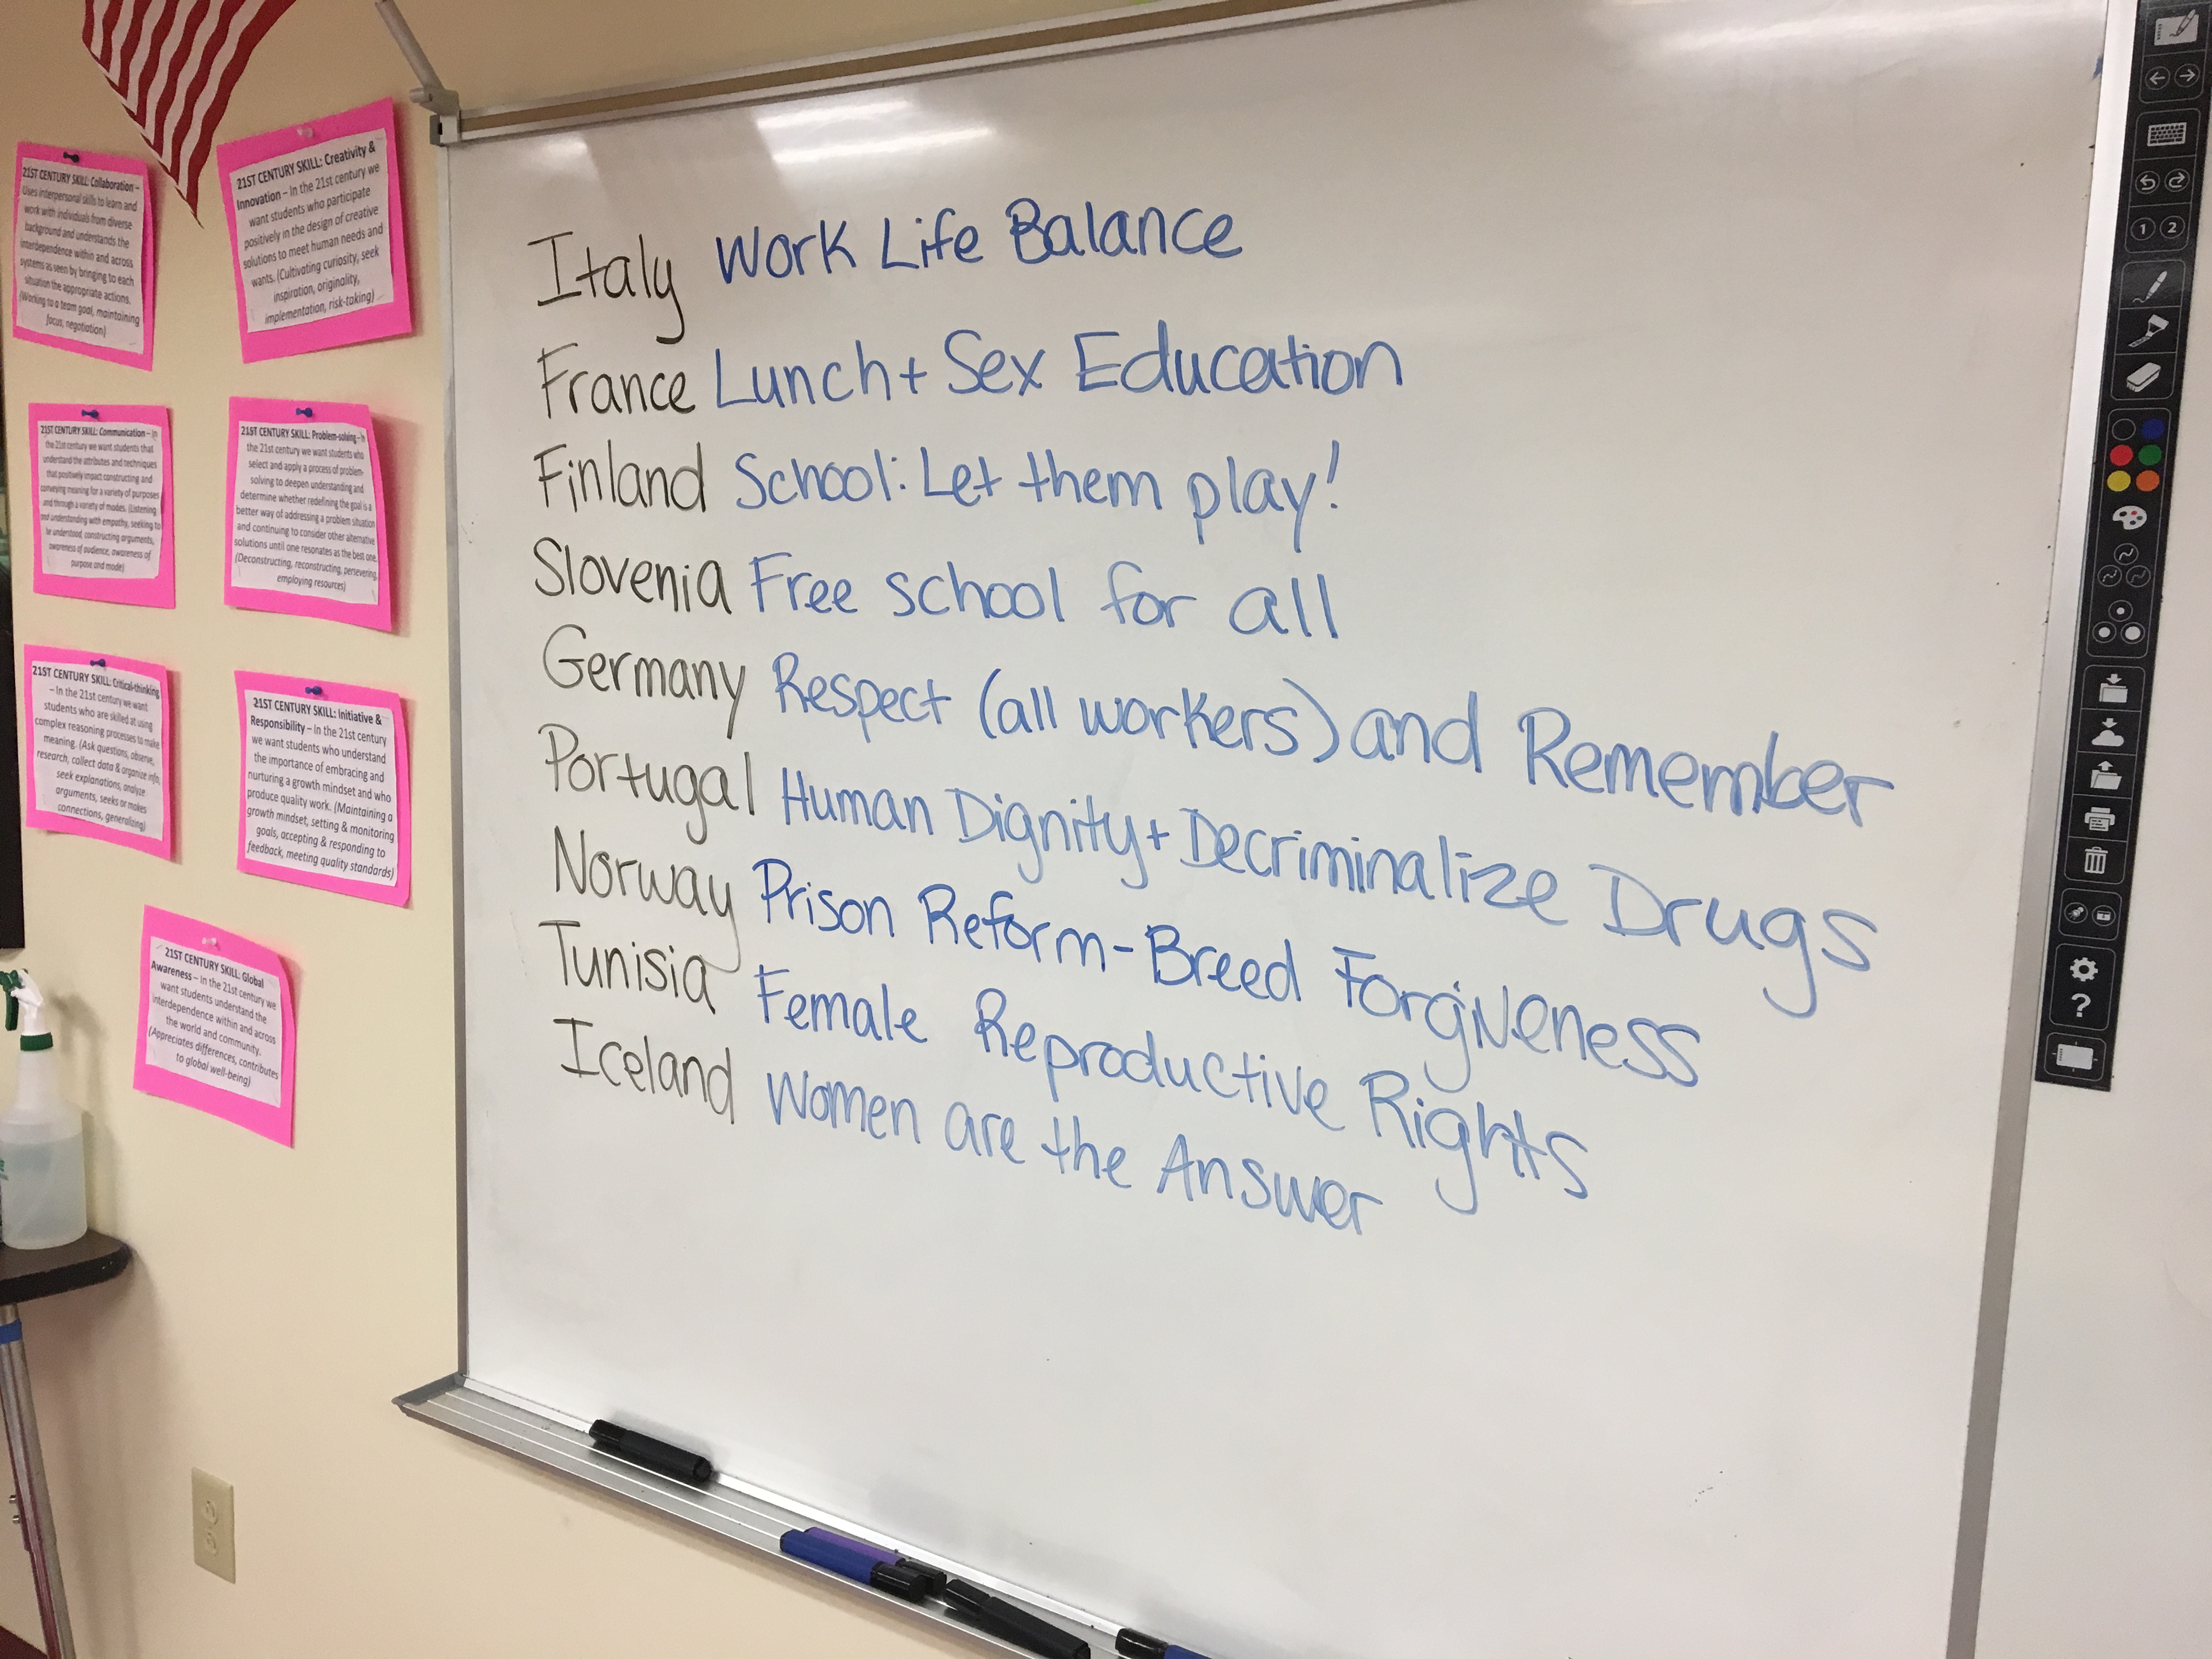 21ST CENTURY SKILL: Collaboration –
Uses interpersonal skills to learn and
work with individuals from diverse
background and understands the
interdependence within and across
systems as seen by bringing to each
situation the appropriate actions.
(Working to a team goal, maintaining
focus, negotiation)
21ST CENTURY SKILL: Creativity &
Innovation – In the 21st century we
want students who participate
positively in the design of creative
solutions to meet human needs and
wants. (Cultivating curiosity, seek
inspiration, originality,
implementation, risk-taking)
21ST CENTURY SKILL: Communication – In
the 21st century we want students that
understand the attributes and techniques
that positively impact constructing and
conveying meaning for a variety of purposes
and through a variety of modes. (Listening
and understanding with empathy, seeking to
be understood, constructing arguments,
awareness of audience, awareness of
purpose and mode)
21ST CENTURY SKILL: Problem-solving – In
the 21st century we want students who
select and apply a process of problem-
solving to deepen understanding and
determine whether redefining the goal is a
better way of addressing a problem situation
and continuing to consider other alternative
solutions until one resonates as the best one.
(Deconstructing, reconstructing, persevering,
employing resources)
21ST CENTURY SKILL: Critical-thinking
– In the 21st century we want
students who are skilled at using
complex reasoning processes to make
meaning. (Ask questions, observe,
research, collect data & organize info,
seek explanations, analyze
arguments, seeks or makes
connections, generalizing)
21ST CENTURY SKILL: Initiative &
Responsibility – In the 21st century
we want students who understand
the importance of embracing and
nurturing a growth mindset and who
produce quality work. (Maintaining a
growth mindset, setting & monitoring
goals, accepting & responding to
feedback, meeting quality standards)
21ST CENTURY SKILL: Global
Awareness – In the 21st century we
want students understand the
interdependence within and across
the world and community.
(Appreciates differences, contributes
to global well-being)
Italy Work Life Balance
France Lunch + Sex Education
Finland School: Let them play!
Slovenia Free school for all
Germany Respect (all workers) and Remember
Portugal Human Dignity + Decriminalize Drugs
Norway Prison Reform - Breed Forgiveness
Tunisia Female Reproductive Rights
Iceland Women are the Answer
1 2
?